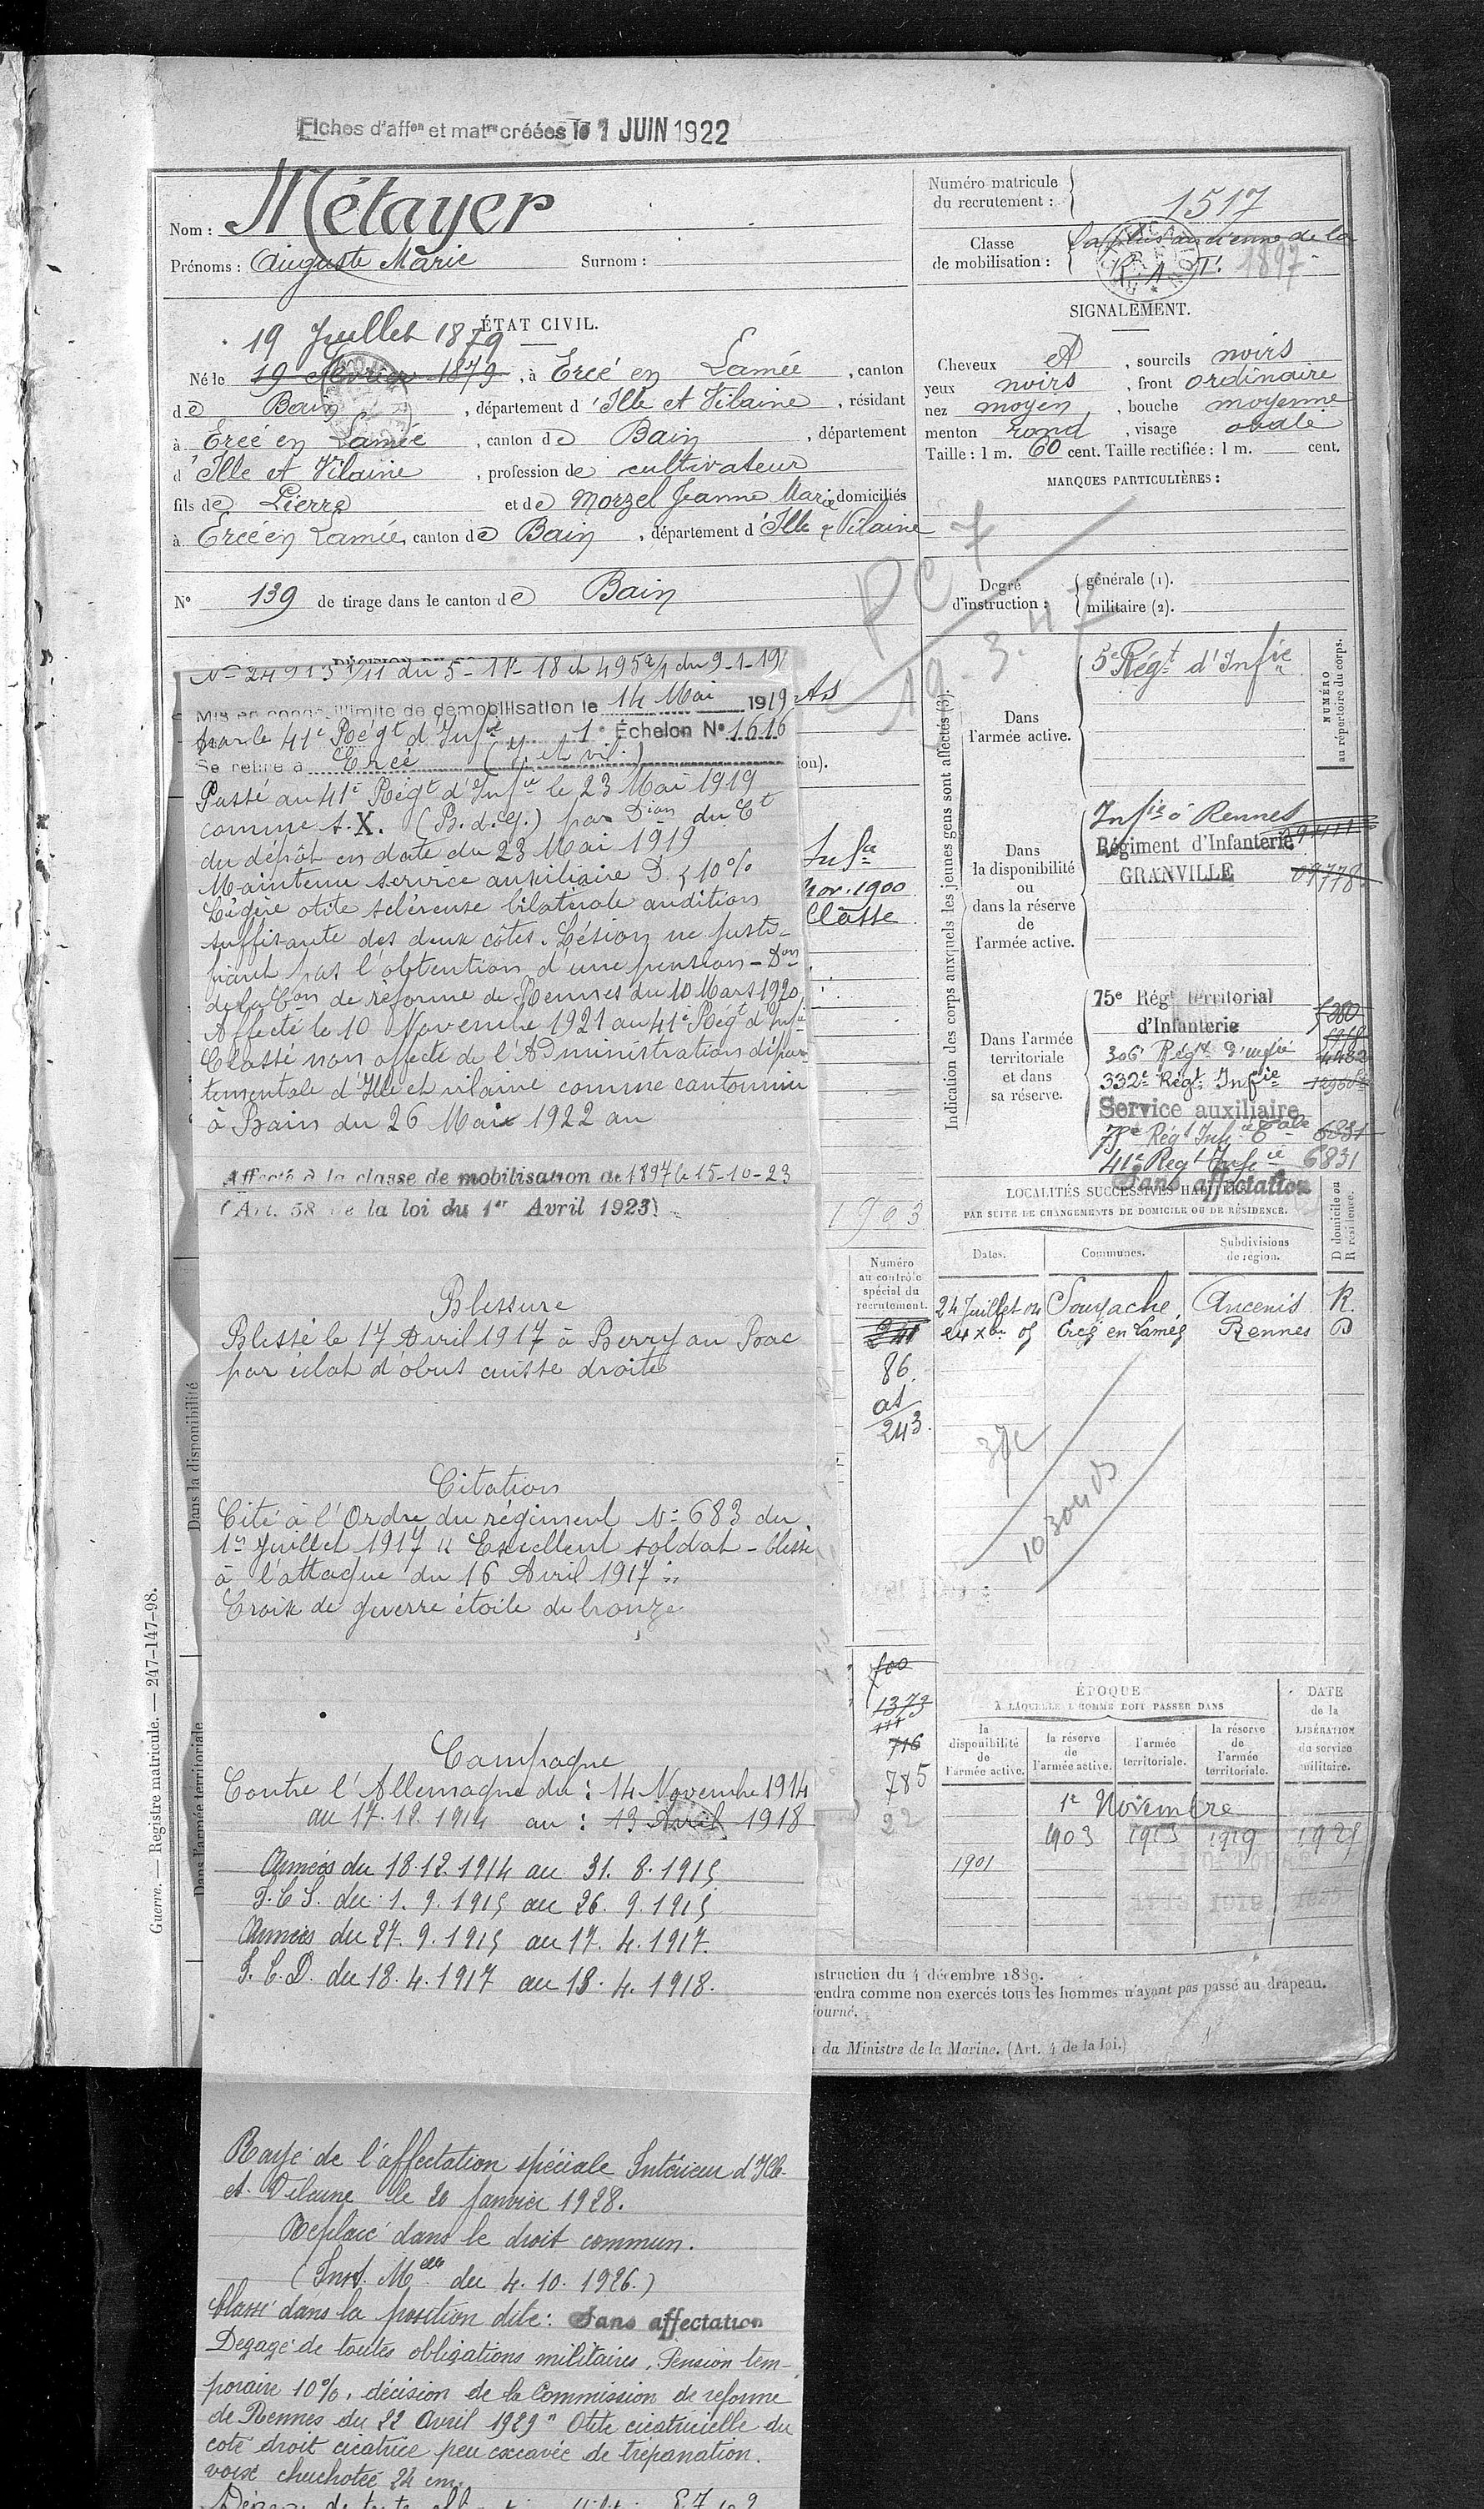 Fiches d'aff^on et mat^re créées le 1 JUIN 1922
Nom : Métayer
Prénoms : Auguste Marie Surnom :
Numéro matricule du recrutement : 1517
Classe de mobilisation : la plus ancienne de la
R.A.T. 1897
ÉTAT CIVIL.
19 Juillet 1879
Né le 19 février 1879, à Ercé en Lamée, canton
de Bain, département d'Ille et Vilaine, résidant
à Ercé en Lamée, canton de Bain, département
d'Ille et Vilaine, profession de cultivateur
fils de Pierre et de Morzel Jeanne Marie domiciliés
à Ercé en Lamée, canton de Bain, département d'Ille & Vilaine
N° 139 de tirage dans le canton de Bain
SIGNALEMENT.
Cheveux et, sourcils noirs
yeux noirs, front ordinaire
nez moyen, bouche moyenne
menton rond, visage ovale
Taille : 1 m. 60 cent. Taille rectifiée : 1 m. cent.
MARQUES PARTICULIÈRES :
Degré d'instruction : générale (1).
militaire (2).
N° 24913 1/11 du 5-11-18 et 495 2/1 du 9-1-19
Mis en congé illimité de démobilisation le 14 Mai 1919
par le 41e Régt d'Infie 1e Échelon N° 1616
Se retire à Ercé
Passé au 41e Régt d'Infie le 23 Mai 1919
comme s.X. (B.d.g.) par Dion du Ct
du dépôt en date du 23 Mai 1919
Maintenu service auxiliaire D. < 10%
Légère otite scléreuse bilatérale audition
suffisante des deux côtés. Lésion ne justi-
fiant pas l'obtention d'une pension - Don
de la Con de réforme de Rennes du 10 Mars 1920
Affecté le 10 Novembre 1921 au 41e Régt d'Infie
Classé non affecté de l'Administration dépar-
tementale d'Ille et vilaine comme cantonnier
à Bain du 26 Mai 1922 au
Affecté à la classe de mobilisation de 1897 le 15-10-23
(Art. 58 de la loi du 1er Avril 1923)
Blessure
Blessé le 17 Avril 1917 à Berry au Bac
par éclat d'obus cuisse droite
Citation
Cité à l'Ordre du régiment N° 683 du
1er Juillet 1917 "Excellent soldat - blessé
à l'attaque du 16 Avril 1917"
Croix de guerre étoile de bronze
Campagne
Contre l'Allemagne du : 14 Novembre 1914
au 17.12.1914 au : 13 Avril 1918
Armées du 18.12.1914 au 31.8.1915
S.C.S. du 1.9.1915 au 26.9.1915
Armées du 27.9.1915 au 17.4.1917.
S.C.D. du 18.4.1917 au 13.4.1918.
Rayé de l'affectation spéciale Intérieur d'Ille-
et-Vilaine le 20 Janvier 1928.
Replacé dans le droit commun.
(Inst. Melle du 4.10.1926.)
Classé dans la position dite : Sans affectation
Dégagé de toutes obligations militaires. Pension tem-
poraire 10%, décision de la Commission de réforme
de Rennes du 22 Avril 1929 "Otite cicatricielle du
coté droit cicatrice peu excavée de trépanation.
voix chuchotée 24 cm.
ion).
Infie
Nor. 1900
Classe
1903
Indication des corps auxquels les jeunes gens sont affectés (3).
NUMÉRO au répertoire du corps.
Dans l'armée active.
5e Régt d'Infie
Dans la disponibilité ou dans la réserve de l'armée active.
Infie à Rennes
Régiment d'Infanterie
GRANVILLE 09778
Dans l'armée territoriale et dans sa réserve.
75e Régt territorial
d'Infanterie
306e Régt d'infie 4482
332e Régt Infie
Service auxiliaire
75e Régt Infie Tale 6831
41e Régt Infie 6831
Sans affectation
LOCALITÉS SUCCESSIVES HABITÉES
PAR SUITE DE CHANGEMENTS DE DOMICILE OU DE RÉSIDENCE.
Dates. Communes. Subdivisions de région. D domicile ou R résidence.
24 Juillet 04 Soudache Ancenis R.
24 Xbre 05 Ercé en Lamée Rennes D
Numéro au contrôle spécial du recrutement.
241
86.
as
243.
700
1373
716
785
22
ÉPOQUE
À LAQUELLE L'HOMME DOIT PASSER DANS
DATE de la LIBÉRATION du service militaire.
la disponibilité de l'armée active.
la réserve de l'armée active.
l'armée territoriale.
la réserve de l'armée territoriale.
1er Novembre
1901 1903 1913 1919 1925
nstruction du 4 décembre 1889.
endra comme non exercés tous les hommes n'ayant pas passé au drapeau.
journé.
du Ministre de la Marine. (Art. 4 de la loi.)
Guerre. — Registre matricule. — 247-147-98.
Dans la disponibilité
Dans l'armée territoriale